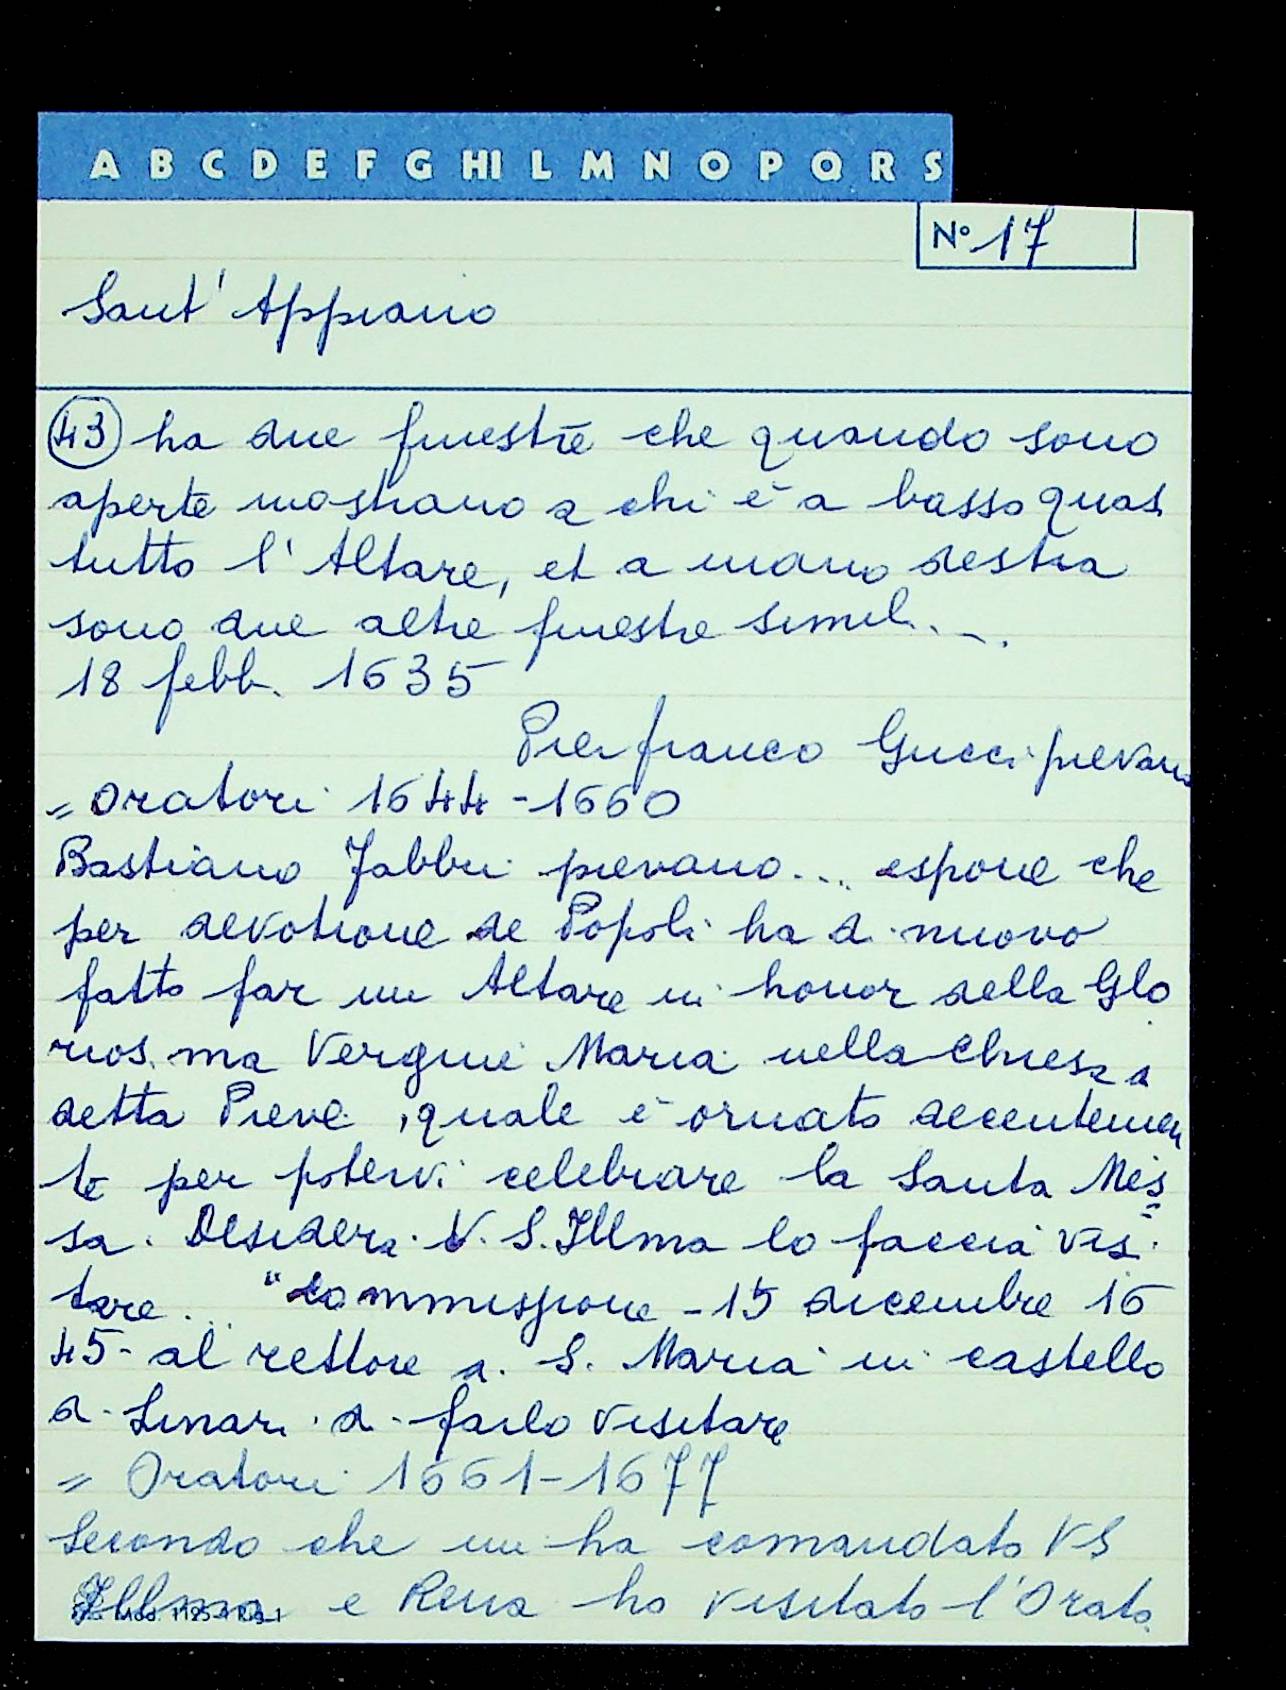 A B C D E F G HI L M N O P Q R S
N° 17
Sant' Appiano
43 ha due finestre che quando sono
aperte mostrano a chi è a basso quasi
tutto l'Altare, et a mano destra
sono due altre finestre simili...
18 febb. 1635
Pier franco Gucci pievano
= Oratori 1644-1660
Bastiano Fabbri pievano... espone che
per devotione de Popoli ha di nuovo
fatto far un Altare in honor della Glo
rios.ma Vergine Maria nella Chiesa di
detta Pieve, quale è ornato decentemen
te per potervi celebrare la Santa Mes
sa. Desidera V. S. Illma lo faccia visi
tare... "Commissione - 15 dicembre 16
45- al rettore di S. Maria in castello
di Linari di farlo visitare
= Oratori 1661-1677
Secondo che mi ha comandato VS
Illma e Rena ho visitato l'Orato